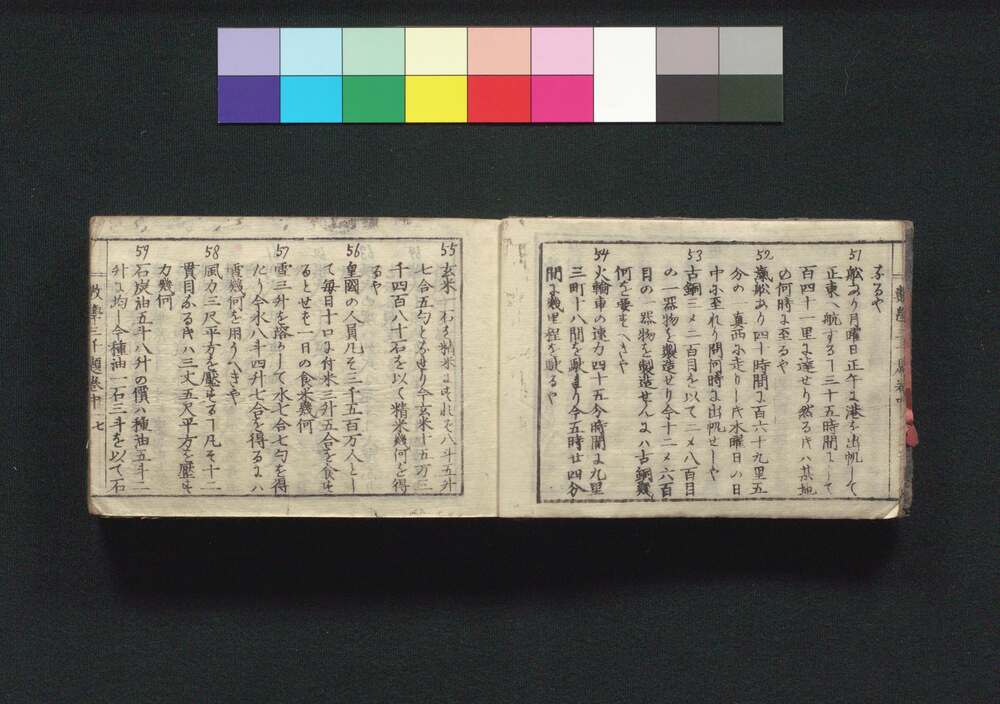 なるや
51 舩あり月曜日正午に港を出帆して
正東へ航する丁三十五時間にして
百四十一里に達せり然る片ハ其地
の何時に至るや
52 滊舩あり四十時間に百六十九里五
分の一真西に走りし片水曜日の日
中に至れり問何時に出帆せしや
53 古銅三メ二百目を以て二メ八百目
の一器物を製造せり今十二メ六百
目の一器物を製造せんにハ古銅幾
何を要すへきや
54 火輪車の速力四十五分時間に九里
三町十八間を馳より今五時廿四分
間に幾里程を馳るや
55 玄米一石を精米にすれそ八斗五升
七合五勺となるより今玄米十五万三
千四百八十石を以て精米幾何を得
るや
56 皇國の人員凡そ三千五百万人とし
て毎日十口に付米三升五合を食す
るとせそ一日の食米幾何
57 雪三升を溶りして水七合七勺を得
たり今水八斗四升七合を得るにハ
雪幾何を用うへきや
58 風力三尺平方を壓する丁凡そ十二
貫目なる片ハ三丈五尺平方を壓す
力幾何
59 石炭油五斗八升の價ハ種油五斗二
升に均し今種油一石三斗を以て石
数學三千題巻中 七